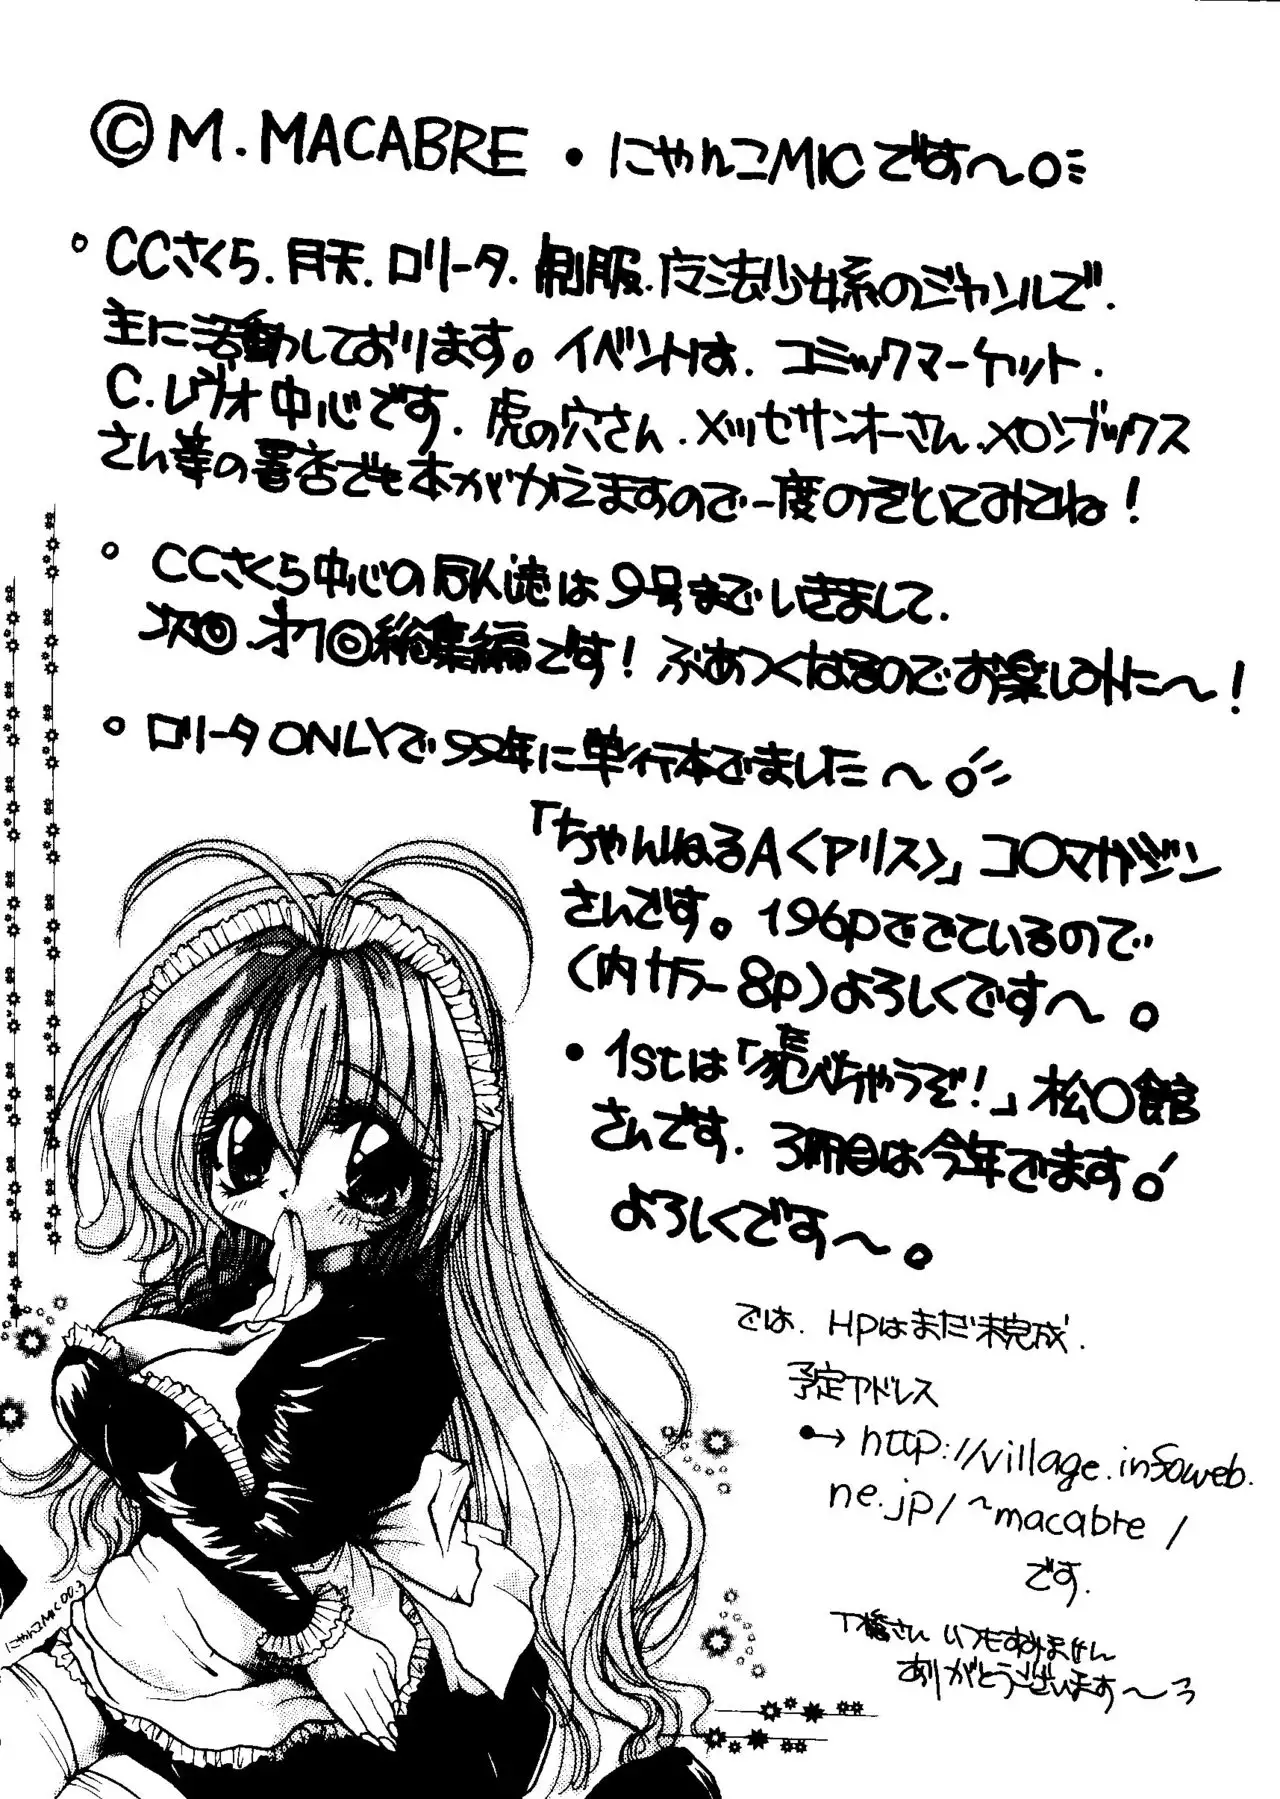 ©M.MACABRE・にゃんこMICです〜。
。CCさくら.月天.ロリータ.制服.魔法少女系のジャンルで.
主に活動しております。イベントは.コミックマーケット.
C.レヴォ中心です.虎の穴さん.メッセサンオーさん.メロンブックス
さん等の書店でも本がかえますので一度のぞいてみてね!
。CCさくら中心の同人誌は9号までいきまして.
次◎.オフ◎総集編です!ぶあつくなるのでお楽しみに〜!
。ロリータONLYで99年に単行本でました〜。
「ちゃんねるA<アリス>」コ〇マガジン
さんです。196pででているので
(内カラー8p)よろしくです〜。
・1stは「
べちゃうぞ!」松〇館
さんです.3冊目は今年でます。
よろしくです〜。
では.HPはまだ未完成.
予定アドレス
・→http://village.infoweb.
ne.jp/~macabre/
です.
T橋さんいつもすみません
ありがとうございます〜
にゃんこMIC00.3